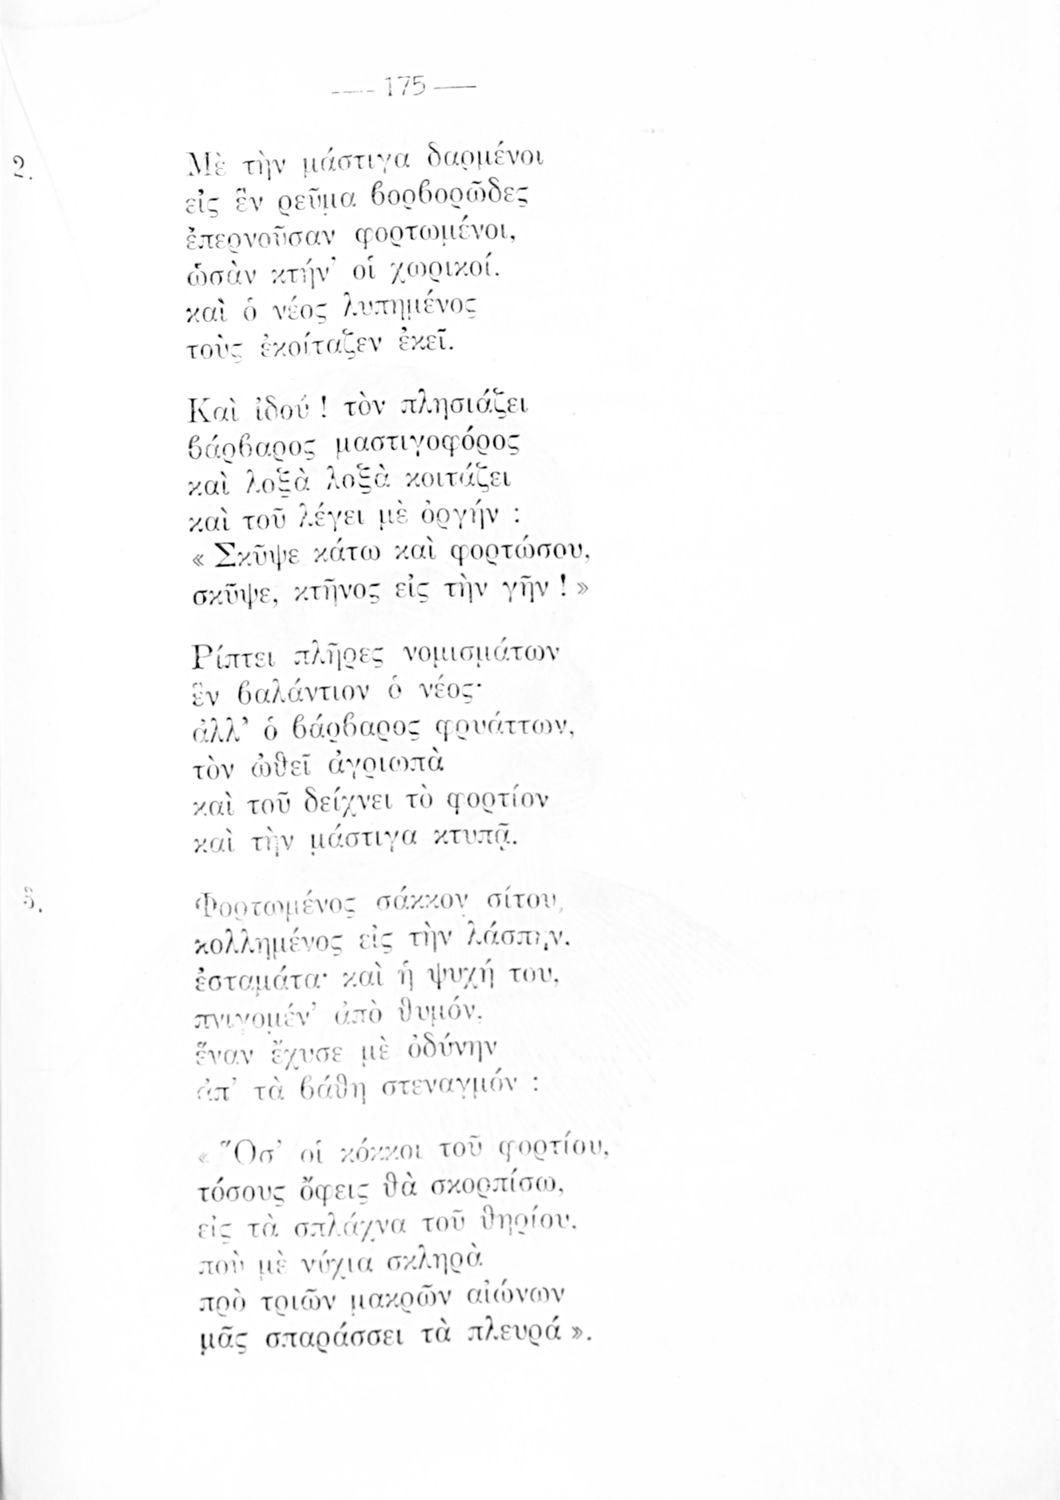 — 175 —
2.
Μὲ τὴν μάστιγα δαρμένοι
εἰς ἓν ρεῦμα βορβορῶδες
ἐπερνοῦσαν φορτωμένοι,
ὡσὰν κτήν' οἱ χωρικοί.
καὶ ὁ νέος λυπημένος
τοὺς ἐκοίταζεν ἐκεῖ.
Καὶ ἰδού ! τὸν πλησιάζει
βάρβαρος μαστιγοφόρος
καὶ λοξὰ λοξὰ κοιτάζει
καὶ τοῦ λέγει μὲ ὀργήν :
« Σκῦψε κάτω καὶ φορτώσου,
σκῦψε, κτῆνος εἰς τὴν γῆν ! »
Ρίπτει πλῆρες νομισμάτων
ἓν βαλάντιον ὁ νέος·
ἀλλ' ὁ βάρβαρος φρυάττων,
τὸν ὠθεῖ ἀγριωπὰ
καὶ τοῦ δείχνει τὸ φορτίον
καὶ τὴν μάστιγα κτυπᾷ.
3.
Φορτωμένος σάκκον σίτου,
κολλημένος εἰς τὴν λάσπην.
ἐσταμάτα· καὶ ἡ ψυχή του,
πνιγομέν' ἀπὸ θυμόν.
ἕναν ἔχυσε μὲ ὀδύνην
ἀπ' τὰ βάθη στεναγμόν :
« Ὅσ' οἱ κόκκοι τοῦ φορτίου,
τόσους ὄφεις θὰ σκορπίσω,
εἰς τὰ σπλάχνα τοῦ θηρίου.
ποὺ μὲ νύχια σκληρὰ
πρὸ τριῶν μακρῶν αἰώνων
μᾶς σπαράσσει τὰ πλευρά ».